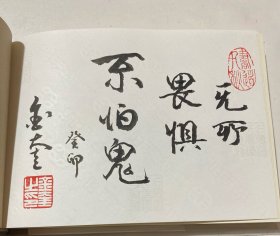 无所
畏惧
不怕鬼
癸卯